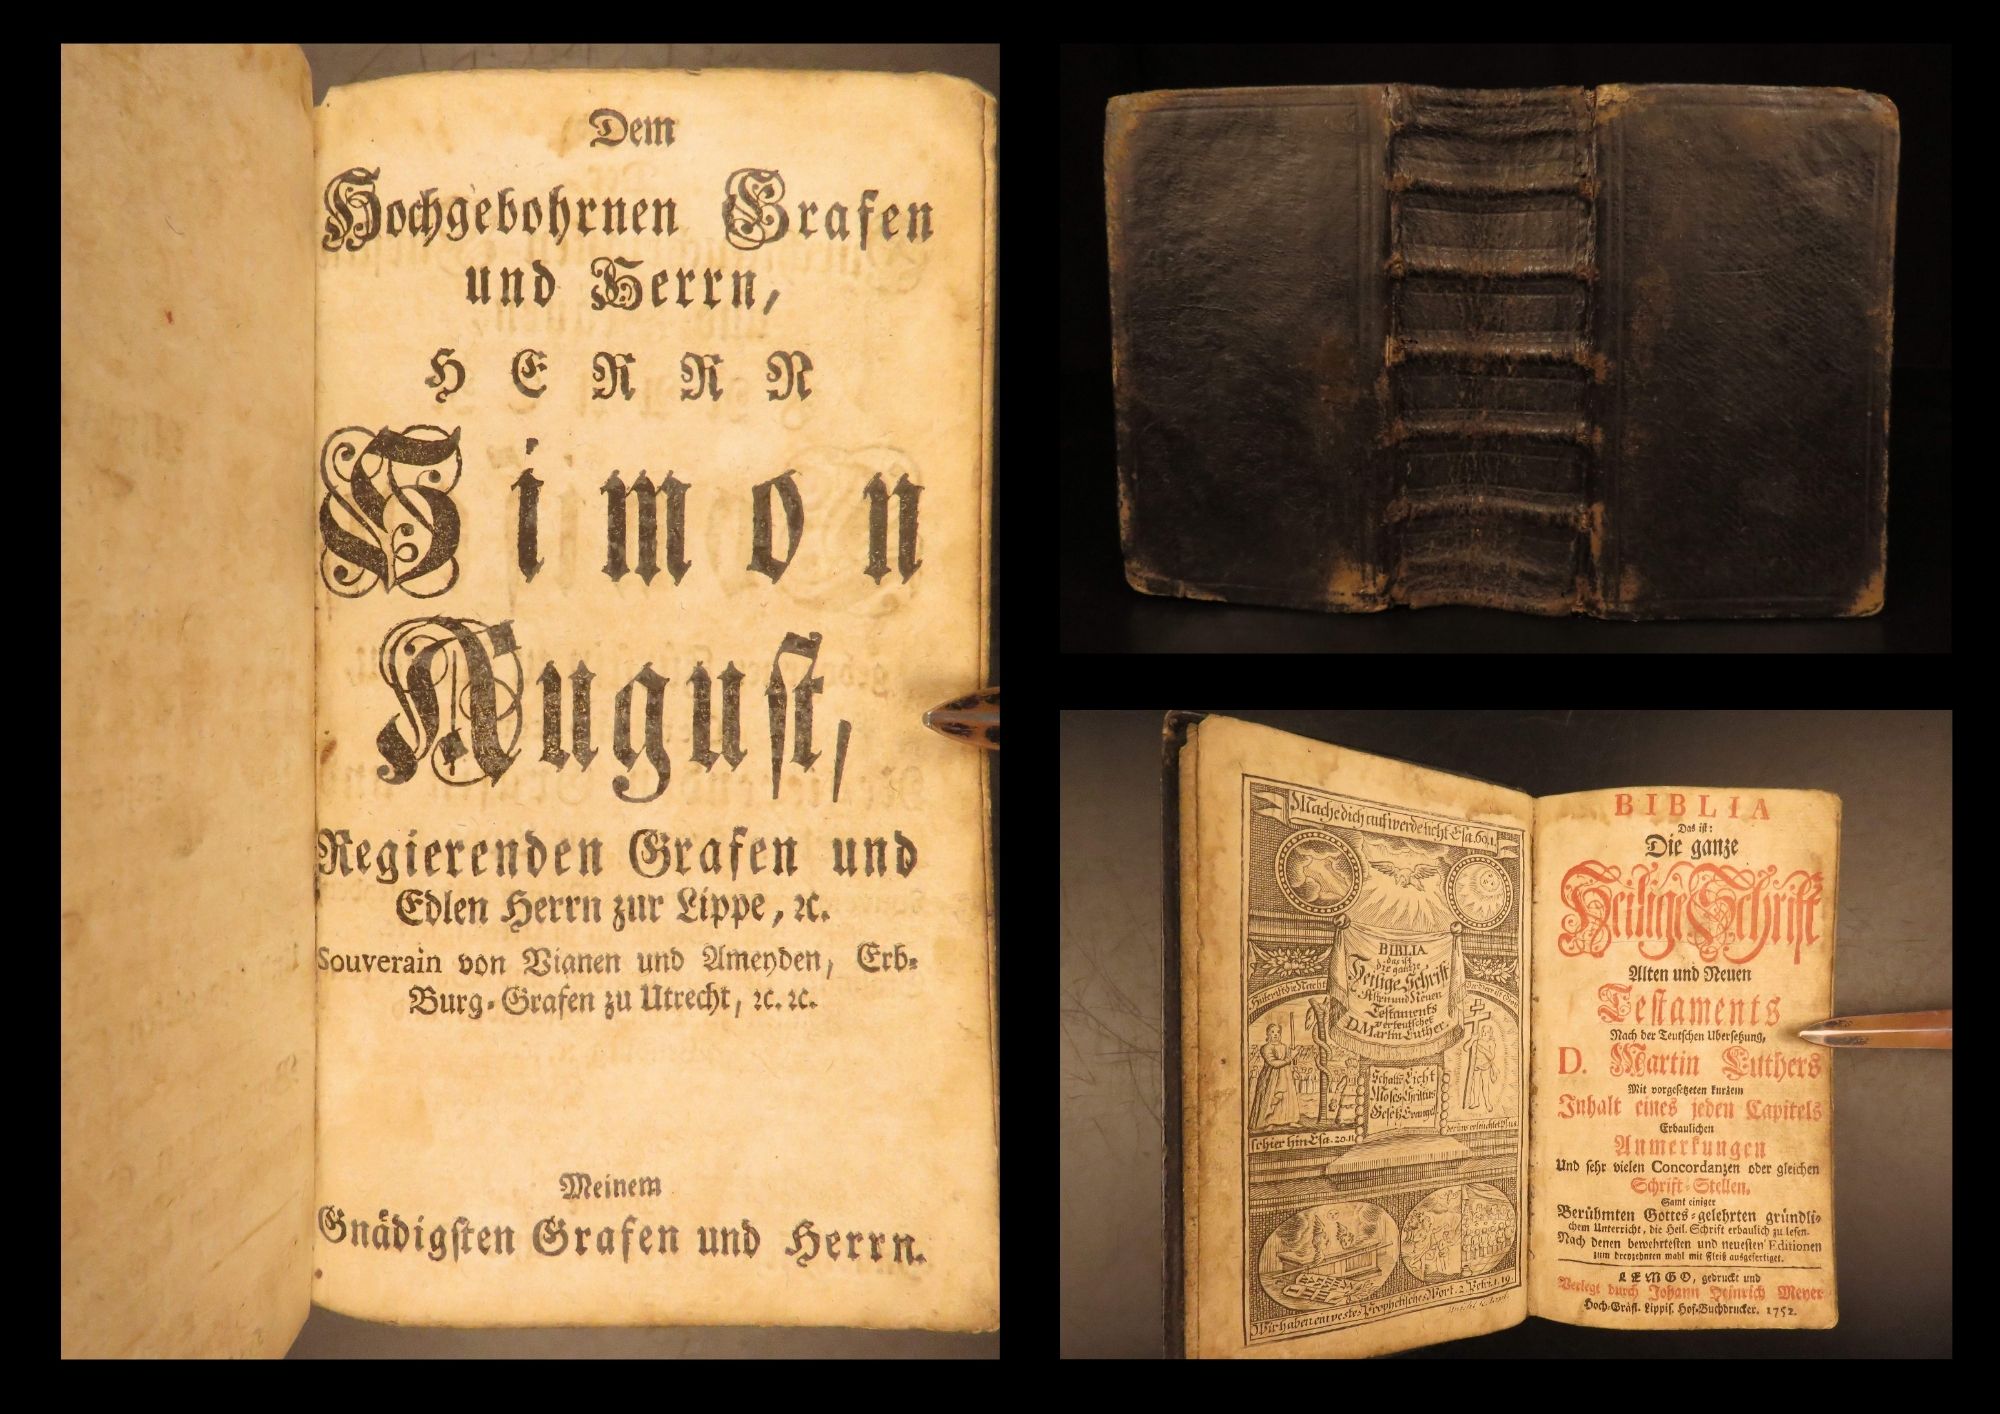 Dem
Hochgebohrnen Grafen
und Herrn,
HERRN
Simon
August,
Regierenden Grafen und
Edlen Herrn zur Lippe, ꝛc.
Souverain von Vianen und Ameyden, Erb-
Burg-Grafen zu Utrecht, ꝛc. ꝛc.
Meinem
Gnädigsten Grafen und Herrn.
Mache dich auf werde licht Esa. 60, 1.
BIBLIA
das ist
die gantze
Heilige Schrift
Alten und Neuen
Testaments
verteutschet
D. Martin Luther.
Hüter ist die Nacht
Schatt Licht
Moses Christus
Gesetz Evangel
schier hin Esa. 20. 11
Wir haben ein veste Prophetisches Wort. 2 Petri. 1. 19
BIBLIA
Das ist:
Die ganze
Heilige Schrift
Alten und Neuen
Testaments
Nach der Teutschen Ubersetzung,
D. Martin Luthers
Mit vorgesetzten kurzem
Inhalt eines jeden Capitels
Erbaulichen
Anmerkungen
Und sehr vielen Concordanzen oder gleichen
Schrift-Stellen,
Samt einiger
Berühmten Gottes-gelehrten gründli-
chem Unterricht, die Heil. Schrift erbaulich zu lesen.
Nach denen bewehrtesten und neuesten Editionen
zum dreyzehnten mahl mit Fleiß ausgefertiget.
LEMGO, gedruckt und
Verlegt durch Johann Heinrich Meyer
Hoch-Gräfl. Lippis. Hof-Buchdrucker. 1752.